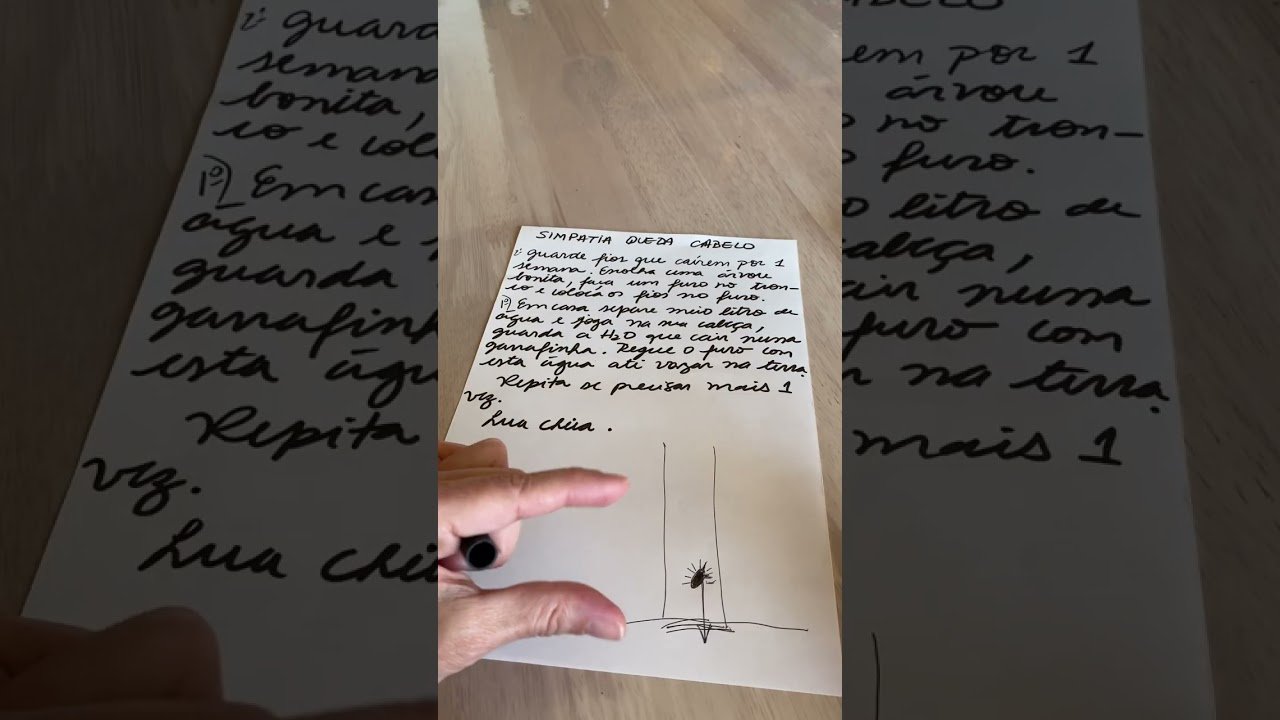 SIMPATIA QUEDA CABELO
guarde fios que cairem por 1
semana. Escolha uma árvore
bonita, faça um furo no tron-
co e coloca os fios no furo.
Em casa separe meio litro de
água e joga na sua cabeça,
guarda a H₂O que cair numa
garrafinha. Regue o furo com
esta água até vazar na terra.
Repita se precisar mais 1
vez.
Lua cheia.